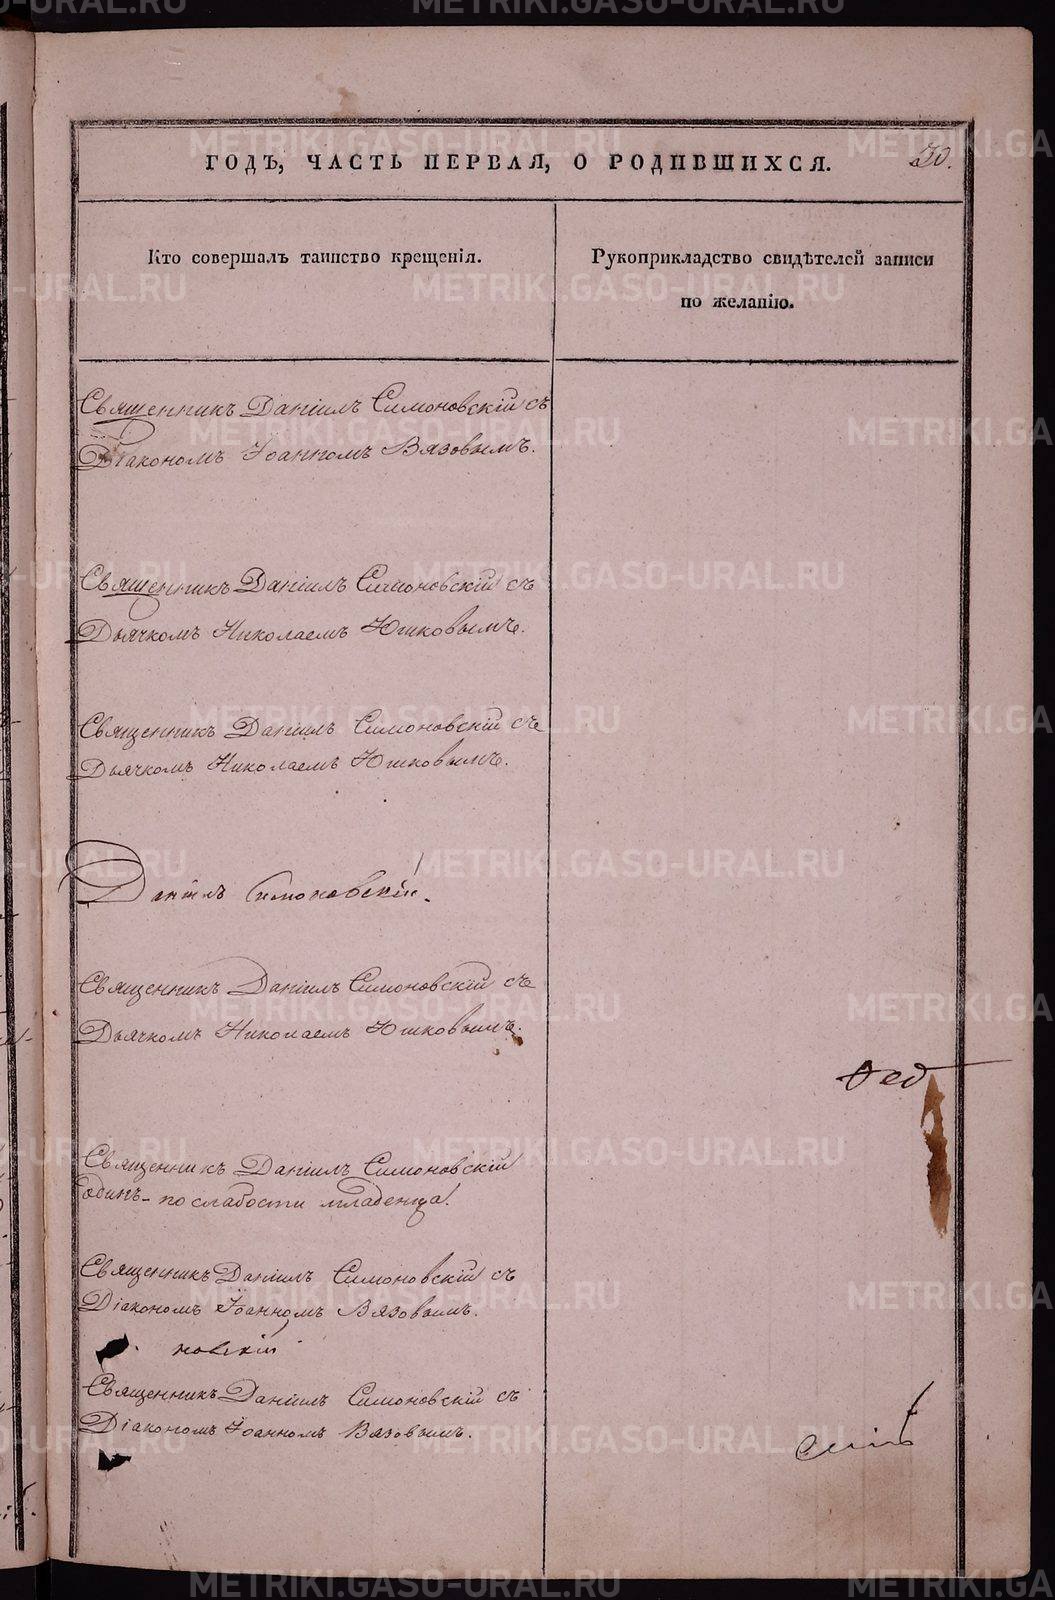 ГОДЪ, ЧАСТЬ ПЕРВАЯ, О РОДИВШИХСЯ.
30.
Кто совершалъ таинство крещенія.
Рукоприкладство свидѣтелей записи
по желанію.
Священникъ Даніилъ Симоновскій съ
Діакономъ Іоанномъ Вязовымъ.
Священникъ Даніилъ Симоновскій съ
Дьячкомъ Николаемъ Юшковымъ.
Священникъ Даніилъ Симоновскій съ
Дьячкомъ Николаемъ Юшковымъ.
Даніилъ Симоновскій.
Священникъ Даніилъ Симоновскій съ
Дьячкомъ Николаемъ Юшковымъ.
Священникъ Даніилъ Симоновскій
одинъ - по слабости младенца.
Священникъ Даніилъ Симоновскій съ
Діакономъ Іоанномъ Вязовымъ.
новскій
Священникъ Даніилъ Симоновскій съ
Діакономъ Іоанномъ Вязовымъ.
METRIKI.GASO-URAL.RU